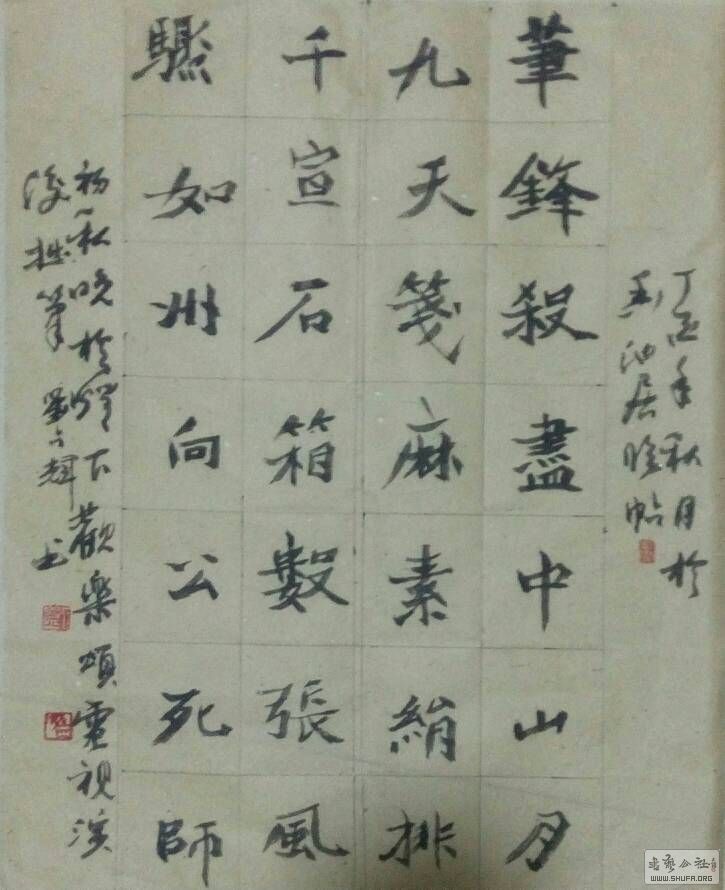 丁酉年秋月於
池居臨帖
筆鋒殺盡中山月
九天箋麻素絹排
千宣石箱數張風
驟如州向公死師
初秋晚於燈下歡樂頌電視演
後拙筆劉輝書
WWW.SHUFA.ORG